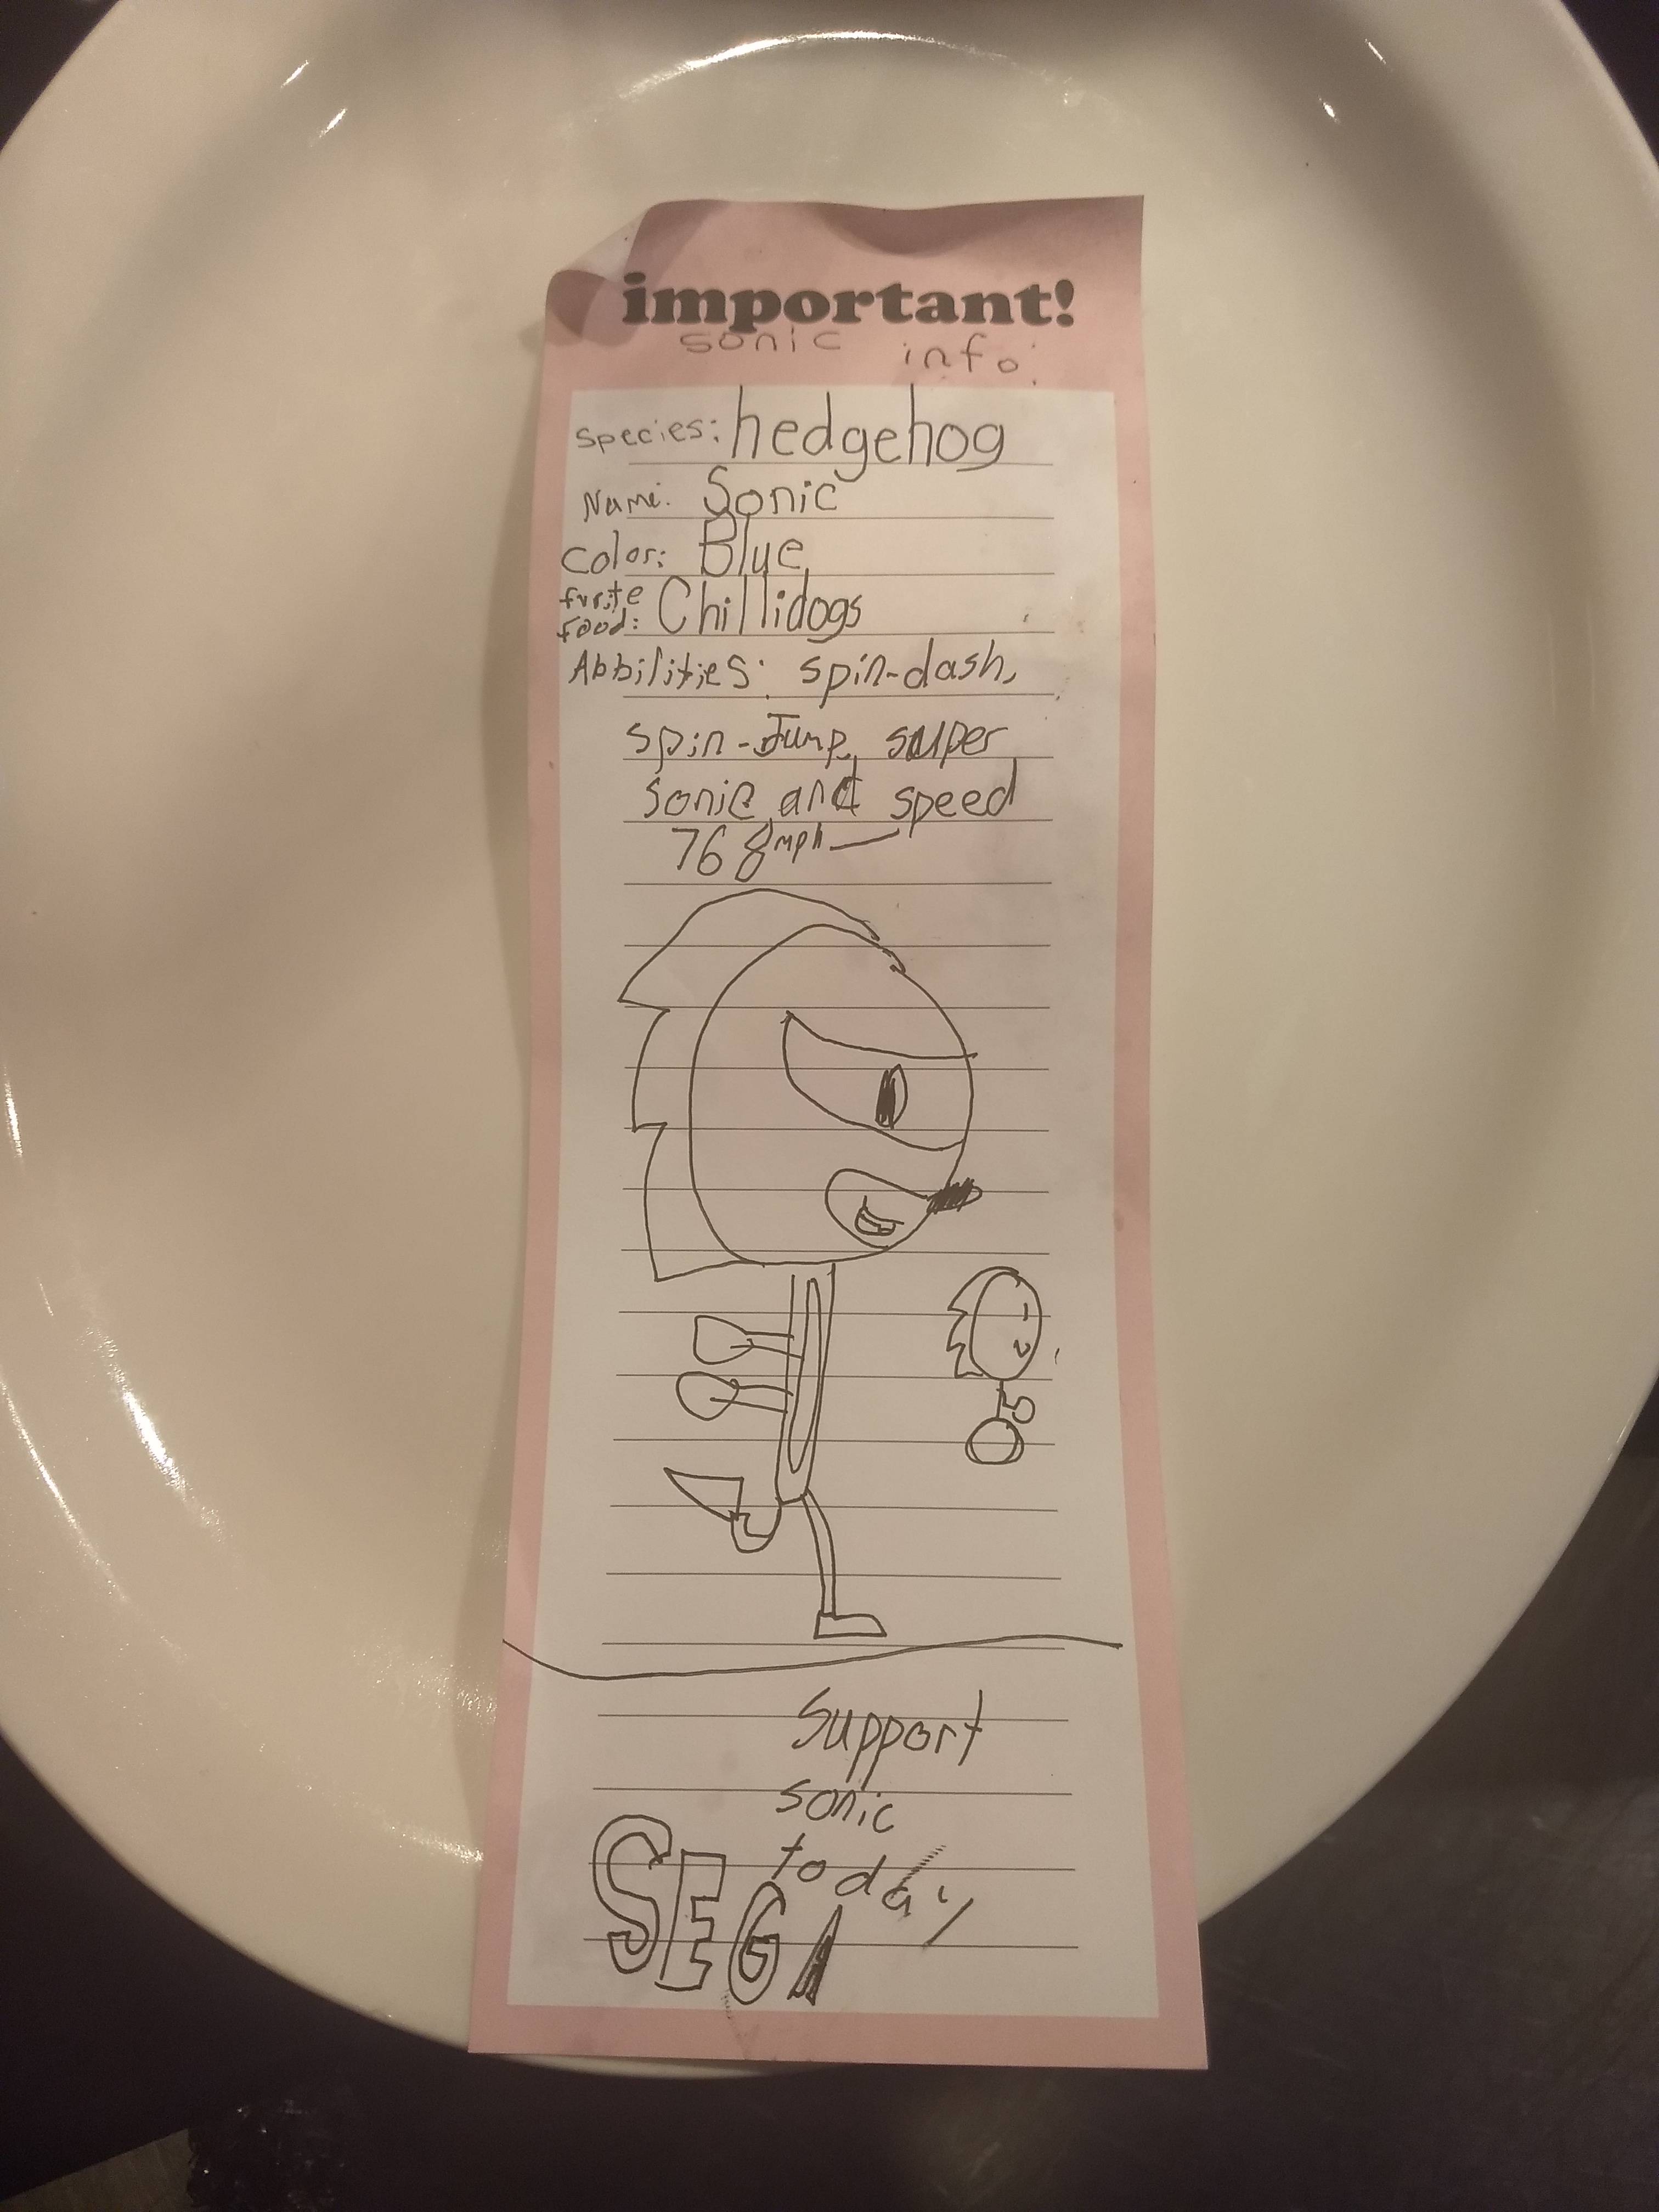 important!
sonic info:
Species: hedgehog
Name: Sonic
Color: Blue
furite
food: Chillidogs
Abbilities: spin-dash,
spin-Jump, super
sonic and speed
768mph
Support
sonic
today
SEGA